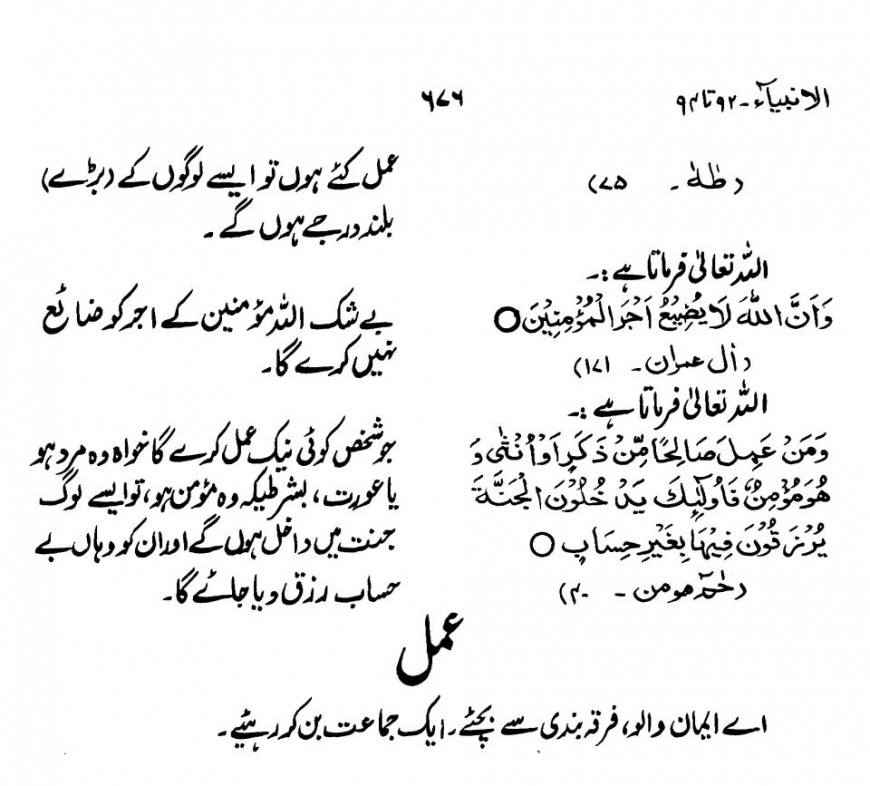 الانبیآء۔۹۲تا۹۴
۶۷۶
(طٰهٰ۔ ۷۵)
اللہ تعالیٰ فرماتا ہے :۔
وَاَنَّ اللّٰهَ لَا یُضِیْعُ اَجْرَ الْمُؤْمِنِیْنَ○
(اٰل عمران۔ ۱۷۱)
اللہ تعالیٰ فرماتا ہے :۔
وَمَنْ عَمِلَ صَالِحًا مِّنْ ذَكَرٍ اَوْ اُنْثٰى وَ
هُوَ مُؤْمِنٌ فَاُولٰٓئِكَ یَدْخُلُوْنَ الْجَنَّةَ
یُرْزَقُوْنَ فِیْهَا بِغَیْرِ حِسَابٍ ○
(حٰمٓ مومن ۔ ۴۰)
عمل کئے ہوں تو ایسے لوگوں کے (بڑے)
بلند درجے ہوں گے ۔
بے شک اللہ مؤمنین کے اجر کو ضائع
نہیں کرے گا۔
جو شخص کوئی نیک عمل کرے گا خواہ وہ مرد ہو
یا عورت ، بشرطیکہ وہ مؤمن ہو، تو ایسے لوگ
جنت میں داخل ہوں گے اور ان کو وہاں بے
حساب رزق دیا جائے گا۔
عمل
اے ایمان والو، فرقہ بندی سے بچئے۔ ایک جماعت بن کر رہئیے ۔